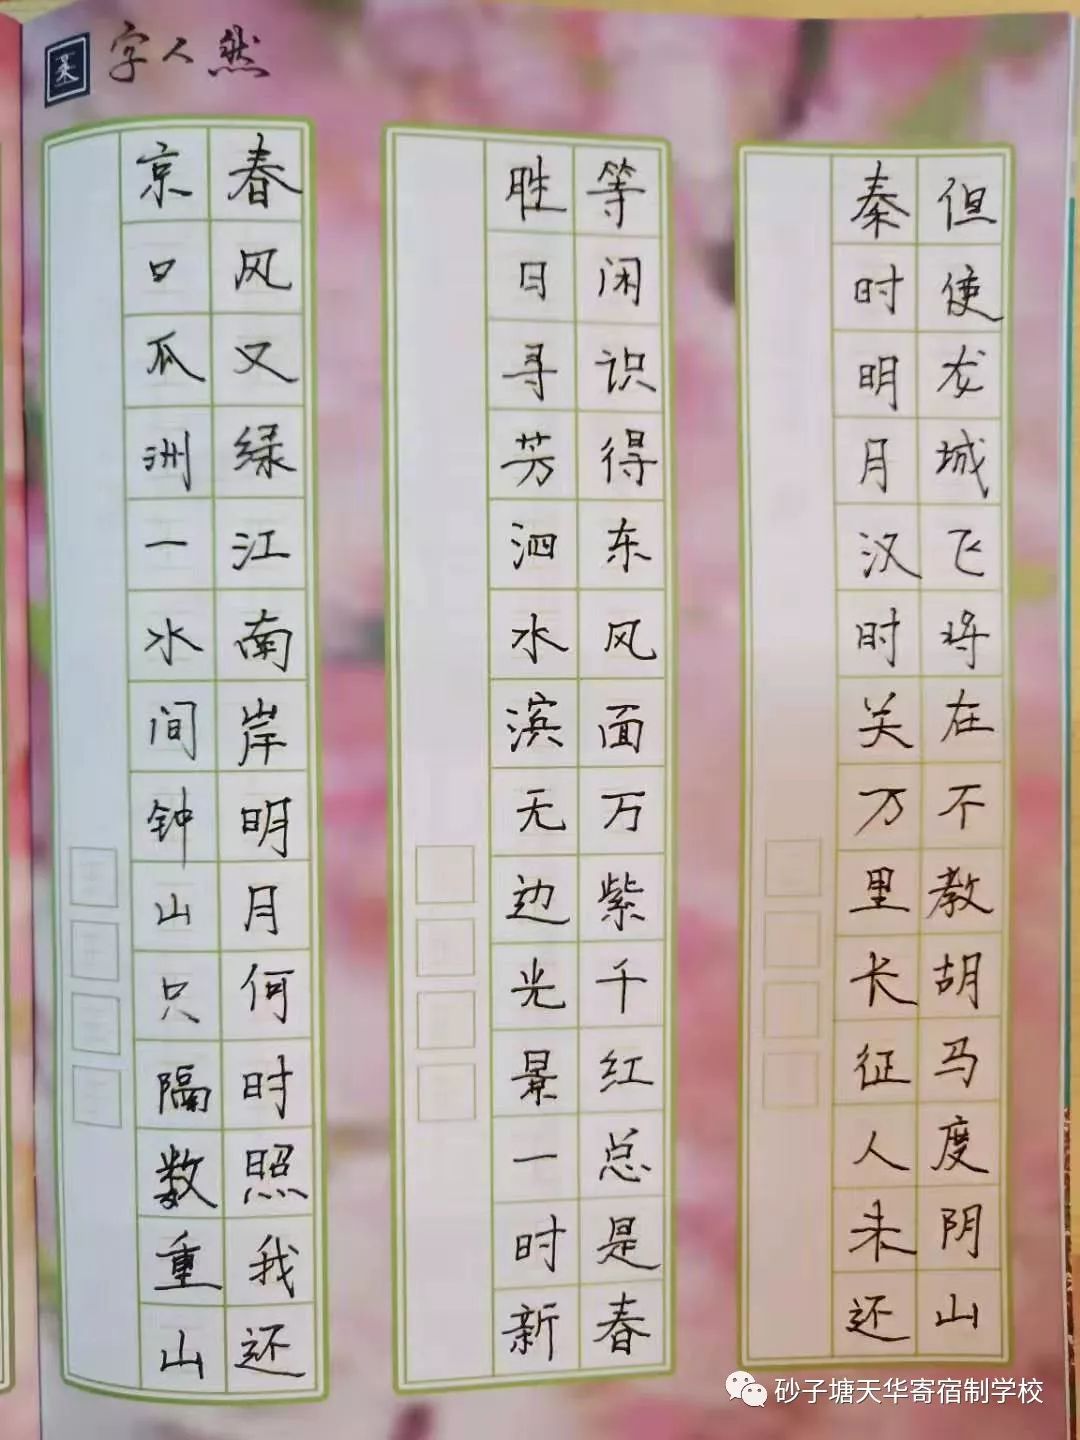 字人然
京口瓜洲一水间钟山只隔数重山
春风又绿江南岸明月何时照我还
胜日寻芳泗水滨无边光景一时新
等闲识得东风面万紫千红总是春
秦时明月汉时关万里长征人未还
但使龙城飞将在不教胡马度阴山
砂子塘天华寄宿制学校